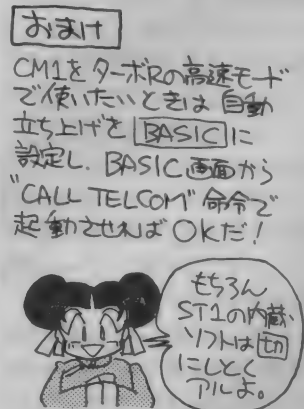 おまけ
CM1をターボRの高速モード
で使いたいときは自動
立ち上げを BASIC に
設定し、BASIC画面から
"CALL TELCOM"命令で
起動させればOKだ！
もちろん
ST1の内蔵
ソフトは切
にしとく
アルよ。